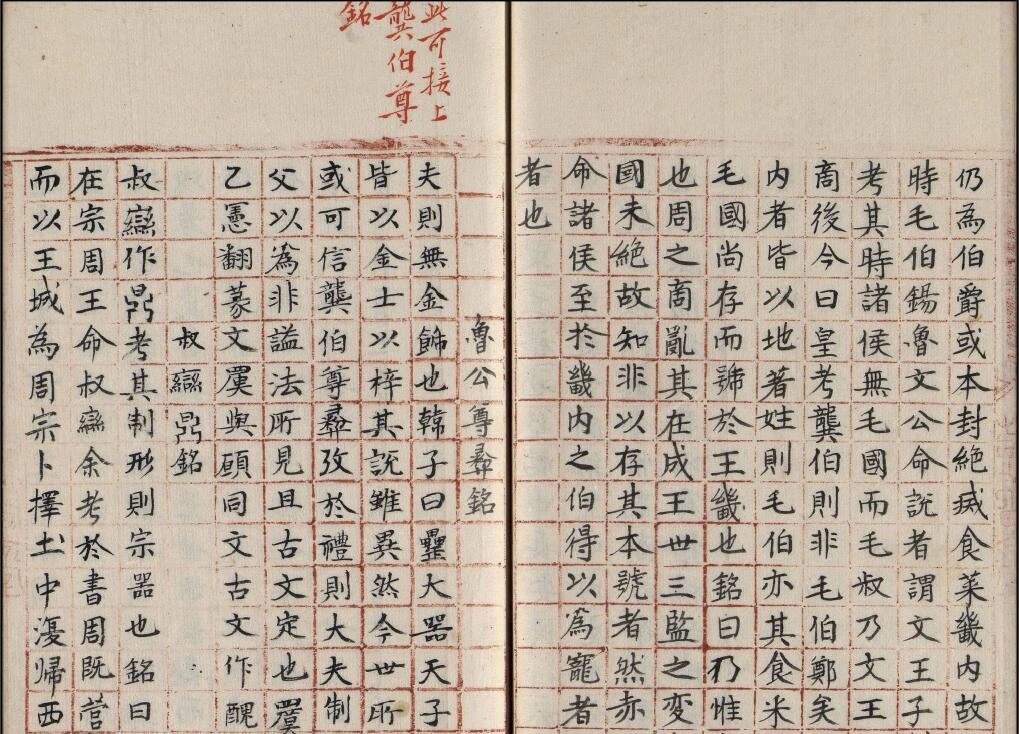 仍為伯爵或本封絶㓕食菜畿内故
時毛伯錫魯文公命説者謂文王子
考其時諸侯無毛國而毛叔乃文王
商後今曰皇考龔伯則非毛伯鄭矣
内者皆以地著姓則毛伯亦其食米
毛國尚存而號於王畿也銘曰乃惟
也周之商亂其在成王世三監之変
國未絶故知非以存其本號者然赤
命諸侯至於畿内之伯得以為寵者
者也
此可接上
龔伯尊
銘
魯公尊彞銘
夫則無金飾也韓子曰罍大器天子
皆以金士以梓其説雖異然今世所
或可信龔伯尊彞攷於禮則大夫制
父以為非謚法所見且古文定也
乙慿翻篆文與頋同文古文作醜
叔䜌鼎銘
叔䜌作鼎考其制形則宗器也銘曰
在宗周王命叔䜌余考於書周既营
而以王城為周宗卜擇土中復帰西